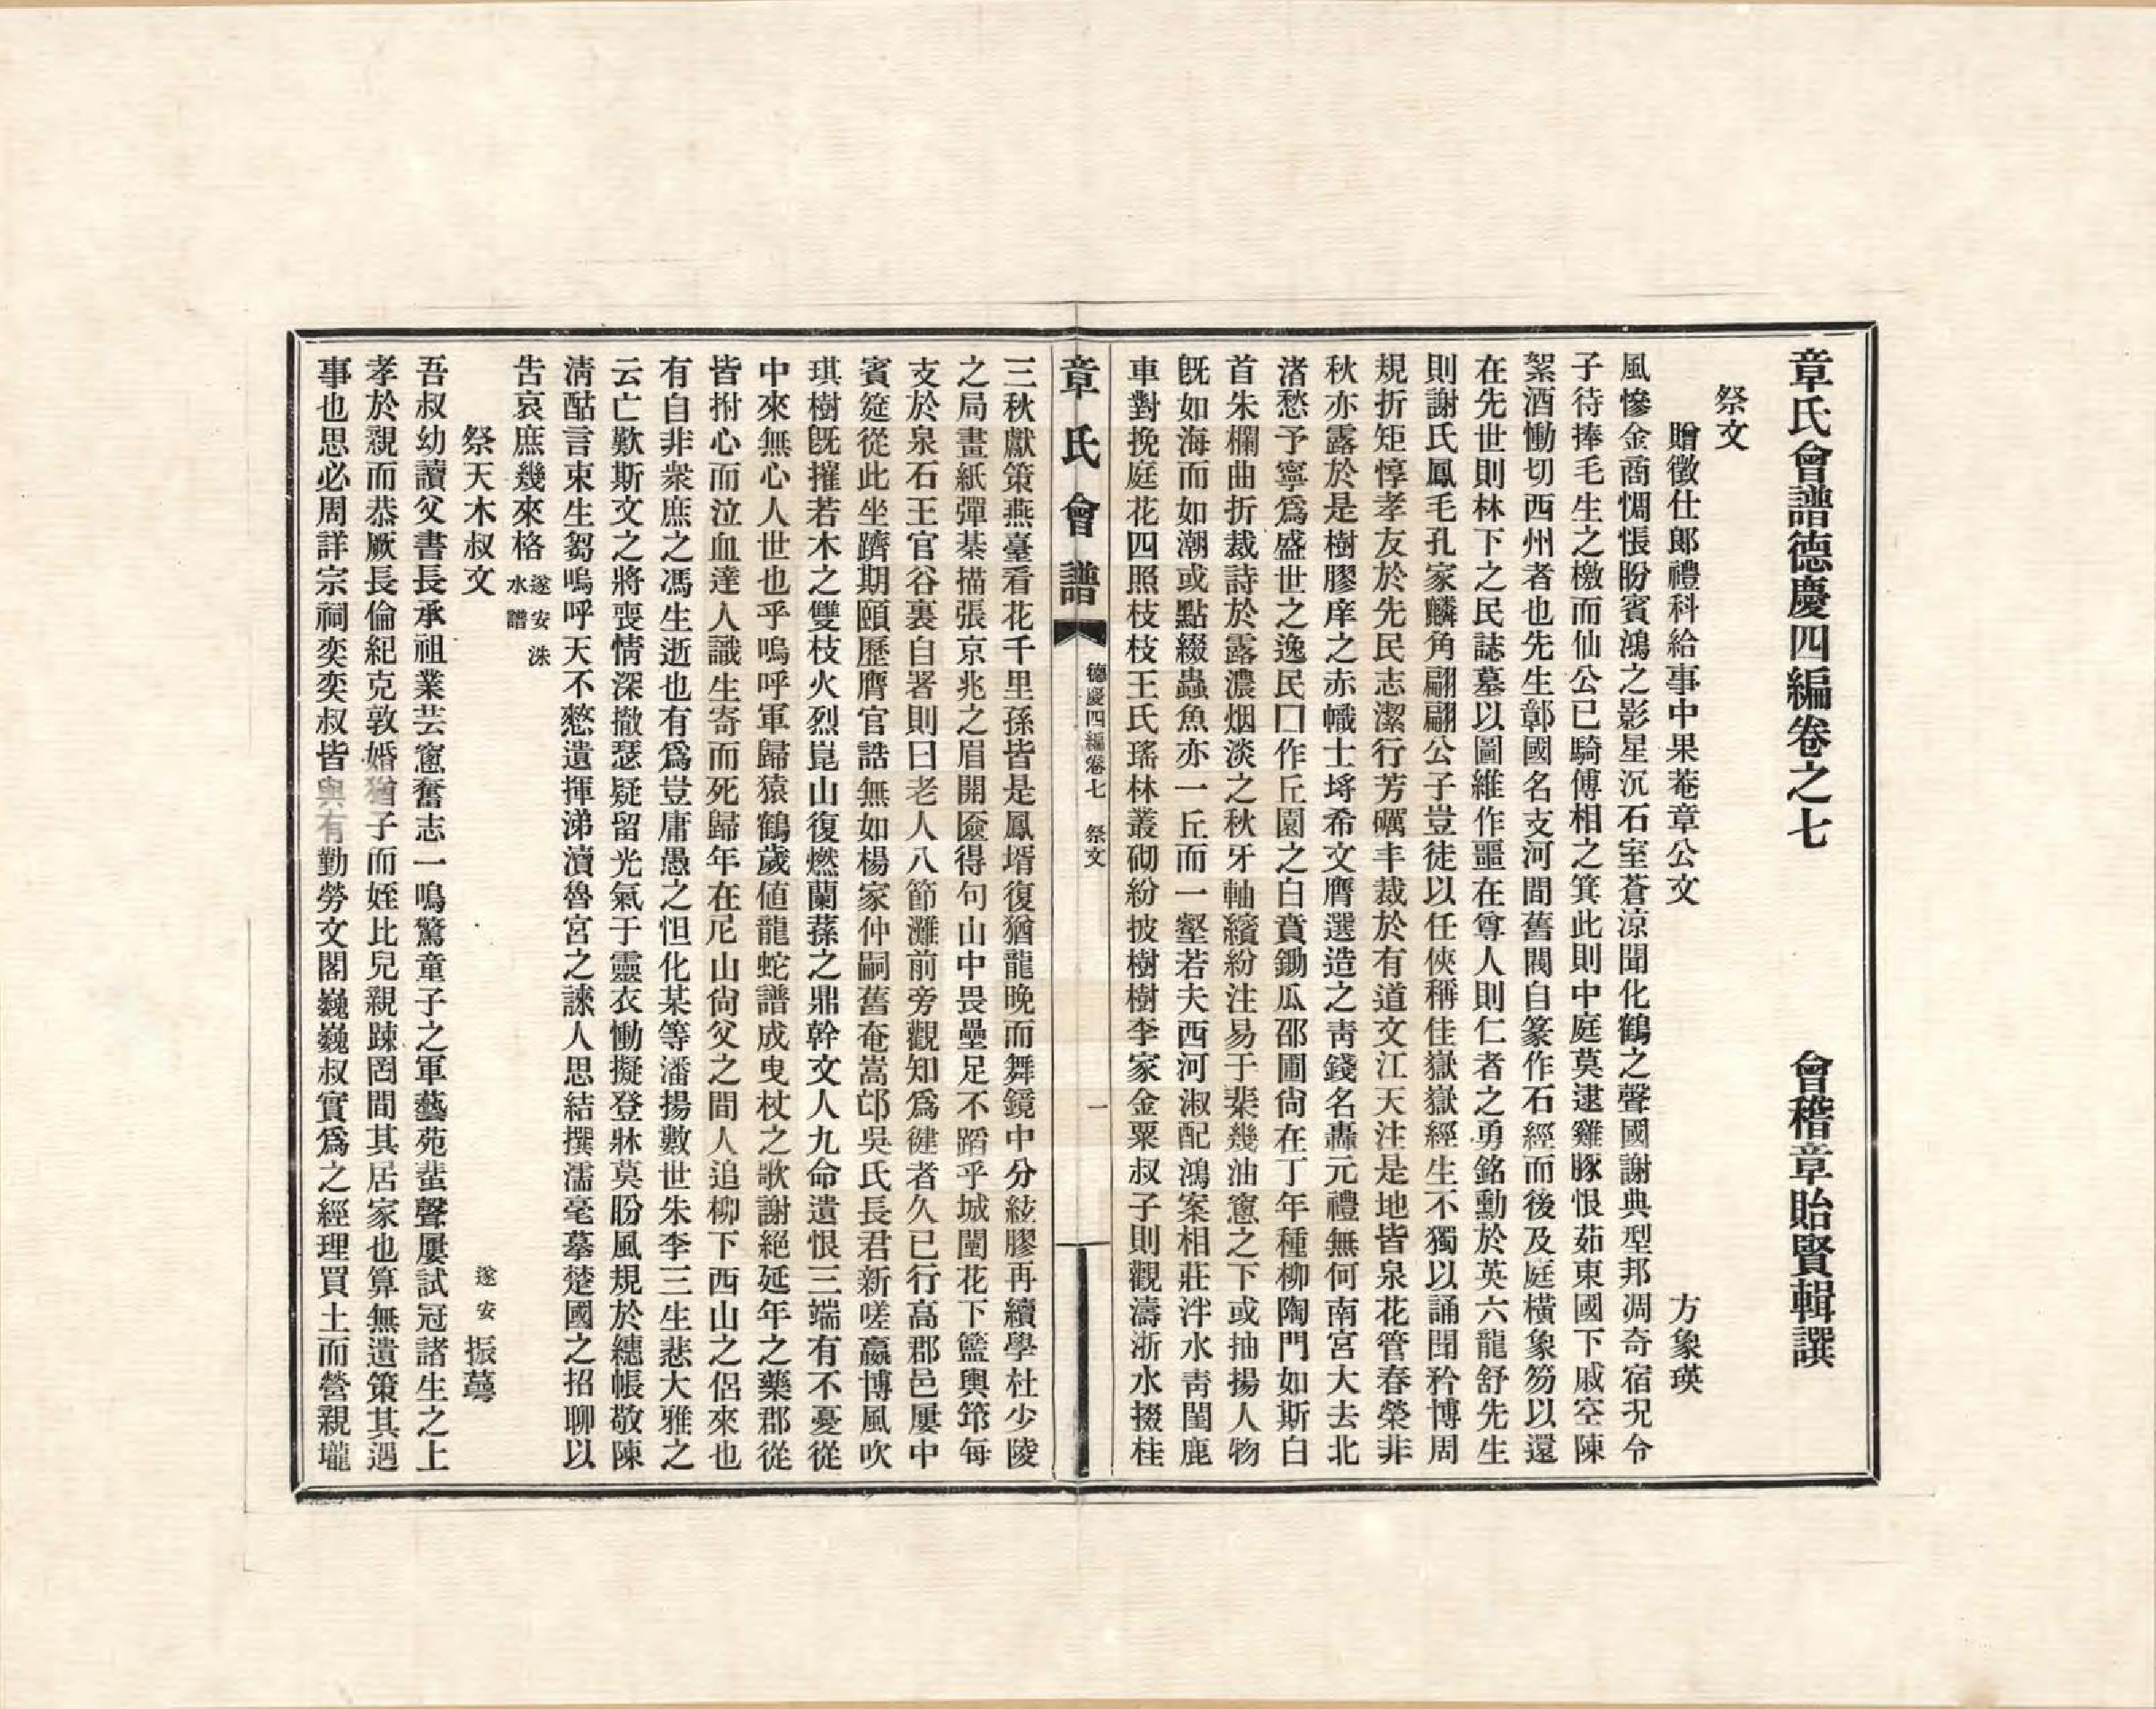 章氏會譜德慶四編卷之七　會稽章貽賢輯譔
祭文
贈徵仕郎禮科給事中果菴章公文　方象瑛
風慘金商惆悵盼賓鴻之影星沉石室蒼涼聞化鶴之聲國謝典型邦凋奇宿況令
子待捧毛生之檄而仙公已騎傅相之箕此則中庭莫逮雞豚恨茹東國下戚空陳
絮酒慟切西州者也先生鄣國名支河間舊閥自篆作石經而後及庭橫象笏以還
在先世則林下之民誌墓以圖維作噩在尊人則仁者之勇銘勳於英六龍舒先生
則謝氏鳳毛孔家麟角翩翩公子豈徒以任俠稱佳嶽嶽經生不獨以誦聞矜博周
規折矩惇孝友於先民志潔行芳礪丰裁於有道文江天注是地皆泉花管春榮非
秋亦露於是樹膠庠之赤幟士埓希文膺選造之靑錢名轟元禮無何南宮大去北
渚愁予寧爲盛世之逸民囗作丘園之白賁鋤瓜邵圃尙在丁年種柳陶門如斯白
首朱欄曲折裁詩於露濃烟淡之秋牙軸繽紛注易于棐幾油窻之下或抽揚人物
旣如海而如潮或點綴蟲魚亦一丘而一壑若夫西河淑配鴻案相莊泮水靑閨鹿
車對挽庭花四照枝枝王氏瑤林叢砌紛披樹樹李家金粟叔子則觀濤浙水掇桂
章氏會譜　德慶四編卷七　祭文　一
三秋獻策燕臺看花千里孫皆是鳳壻復猶龍晚而舞鏡中分絃膠再續學杜少陵
之局畫紙彈棊描張京兆之眉開匳得句山中畏壘足不蹈乎城闉花下籃輿笻每
支於泉石王官谷裏自署則曰老人八節灘前旁觀知爲健者久已行高郡邑屢中
賓筵從此坐躋期頤歷膺官誥無如楊家仲嗣舊奄嵩邙吳氏長君新嗟嬴博風吹
琪樹旣摧若木之雙枝火烈崑山復燃蘭蓀之鼎幹文人九命遺恨三端有不憂從
中來無心人世也乎嗚呼軍歸猿鶴歲値龍蛇譜成曳杖之歌謝絕延年之藥郡從
皆拊心而泣血達人識生寄而死歸年在尼山尙父之間人追柳下西山之侶來也
有自非衆庶之馮生逝也有爲豈庸愚之怛化某等潘揚數世朱李三生悲大雅之
云亡歎斯文之將喪情深撤瑟疑留光氣于靈衣慟擬登牀莫盼風規於繐帳敬陳
淸酤言束生芻嗚呼天不憗遺揮涕瀆魯宮之誄人思結撰濡毫摹楚國之招聊以
告哀庶幾來格遂安洙水譜
祭天木叔文　遂安振蕚
吾叔幼讀父書長承祖業芸窻奮志一鳴驚童子之軍藝苑蜚聲屢試冠諸生之上
孝於親而恭厥長倫紀克敦婚猶子而姪比兒親踈罔間其居家也算無遺策其遇
事也思必周詳宗祠奕奕叔皆與有勤勞文閣巍巍叔實爲之經理買土而營親壠